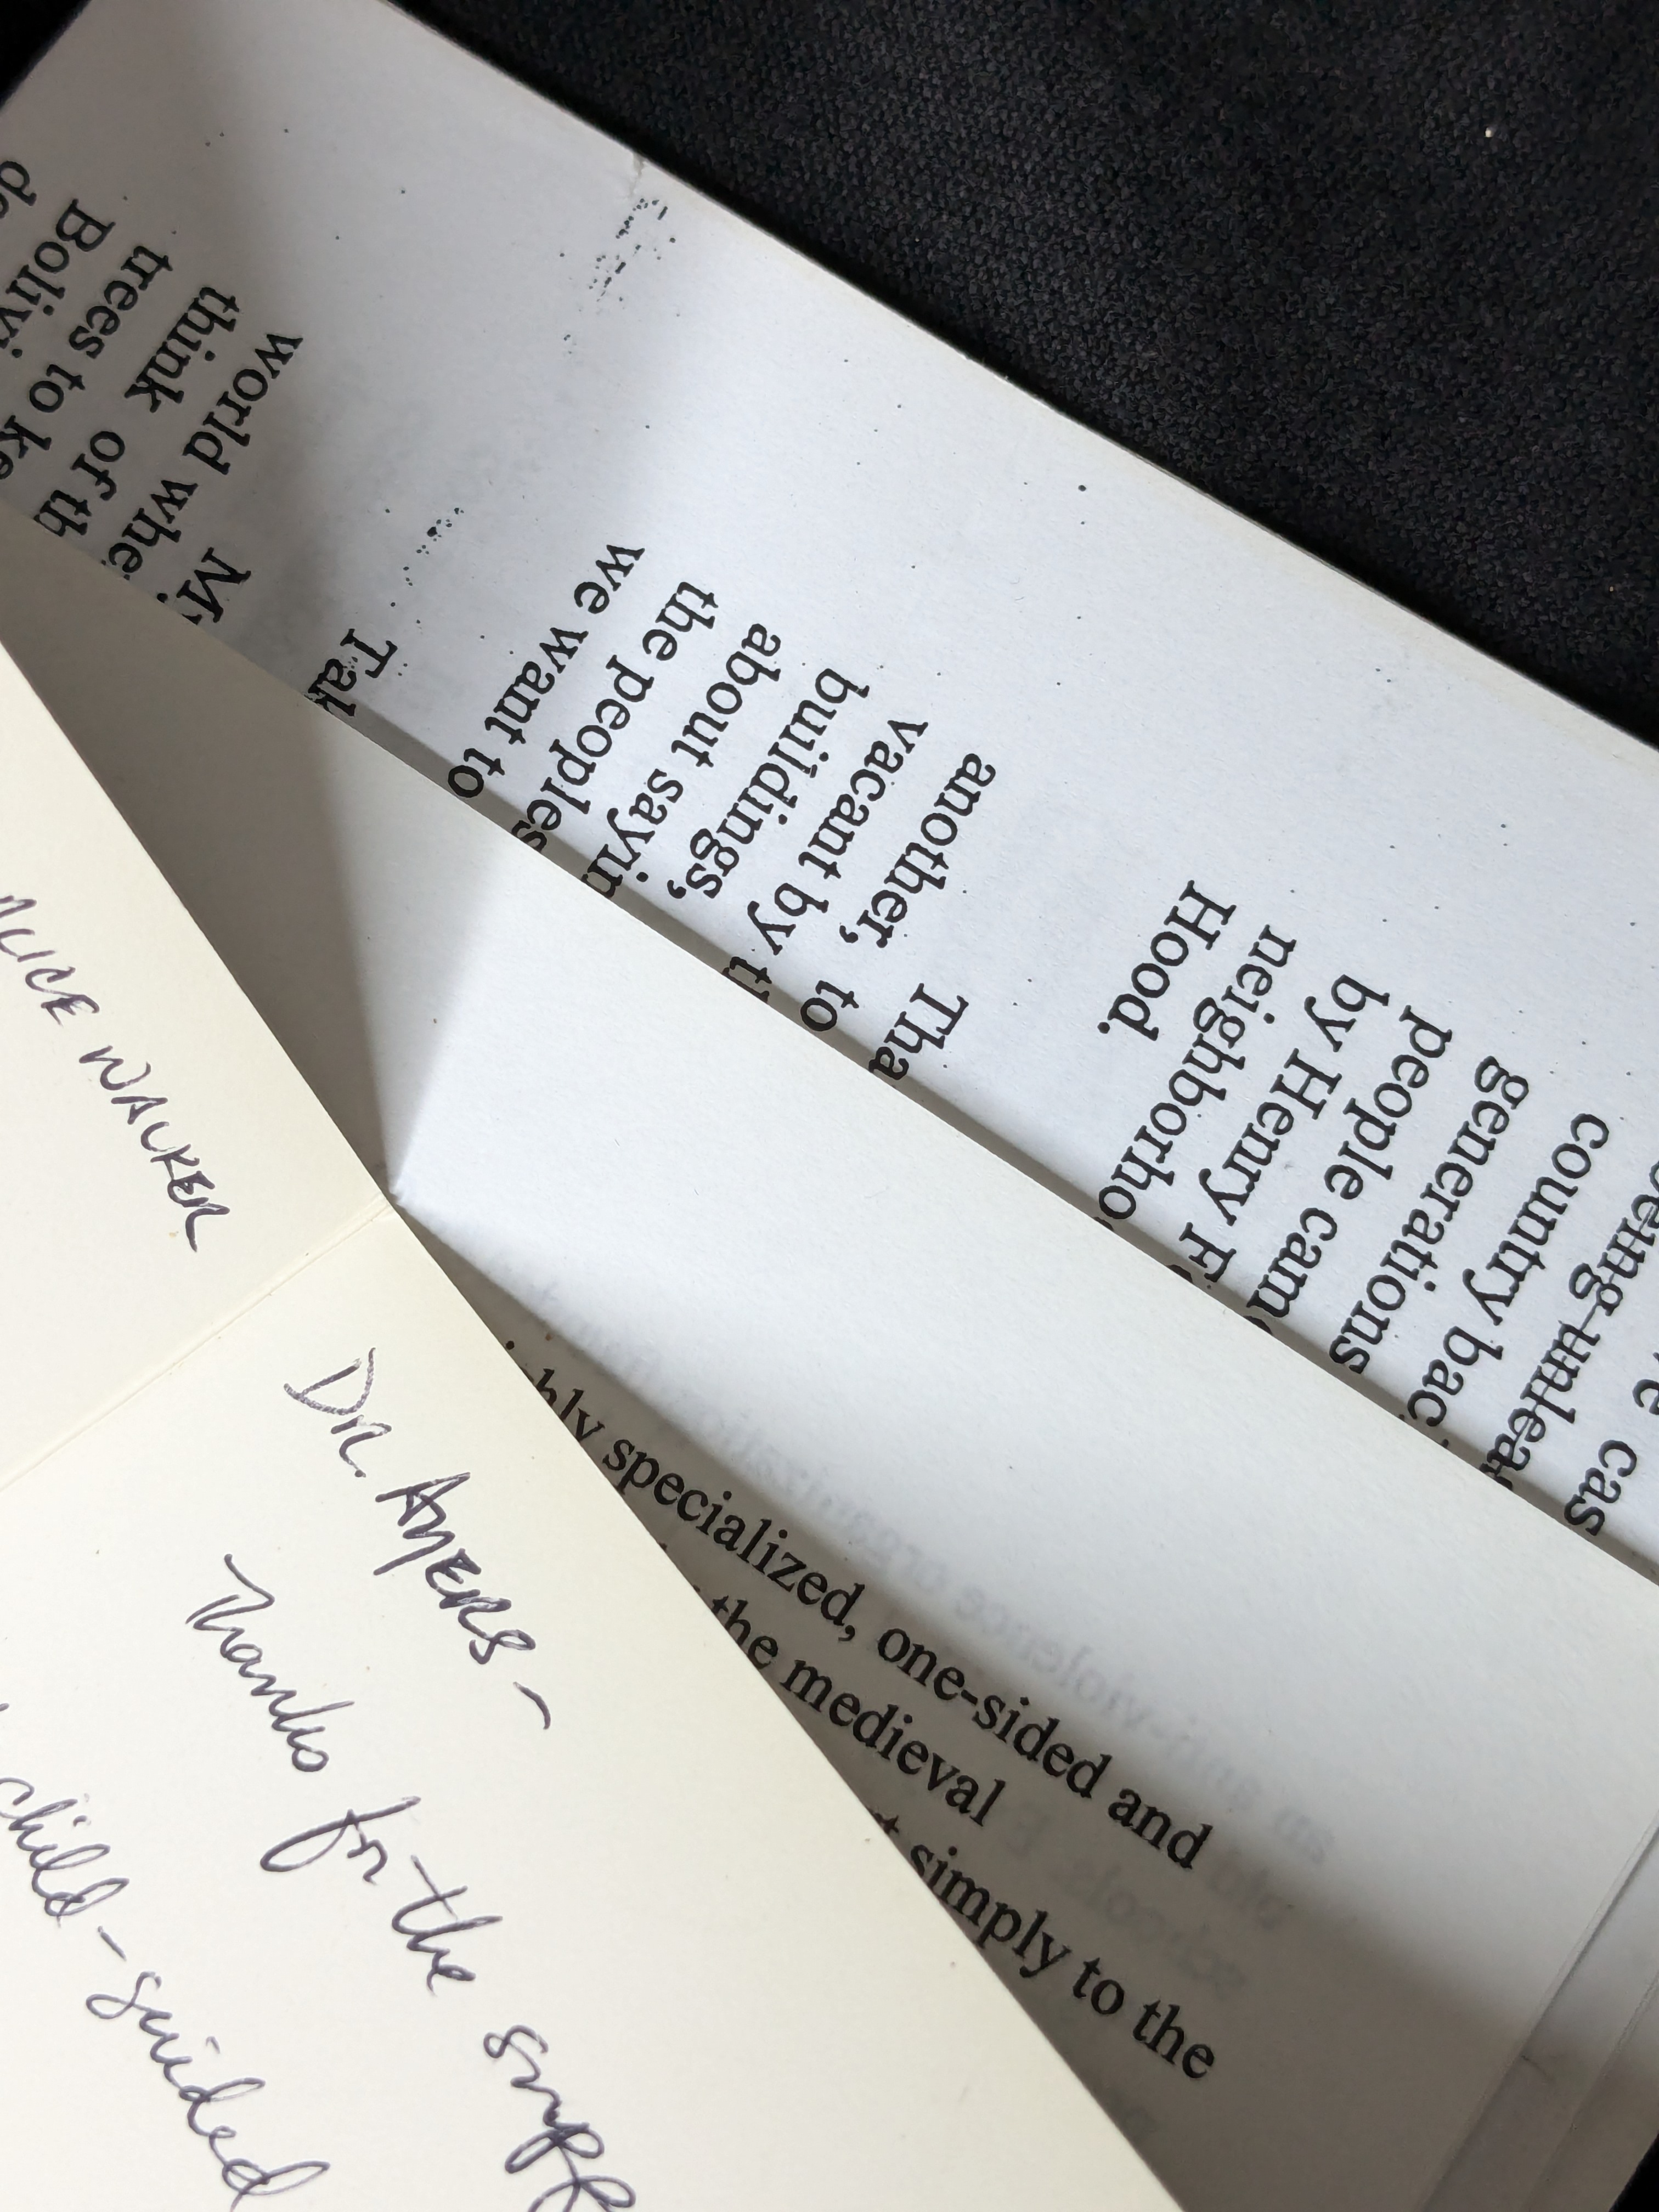 we want to
the peoples
about sayin
buildings,
vacant by
another, to
Tha
Hood.
neighborho
by Henry
people cam
generations
country bac
being unlea
cas
Tak
My
world whe
think of th
trees to ke
Bolivi
de
WALKER
Dr. AYERS -
Thanks for the supp
child-guided
specialized, one-sided and
the medieval
simply to the